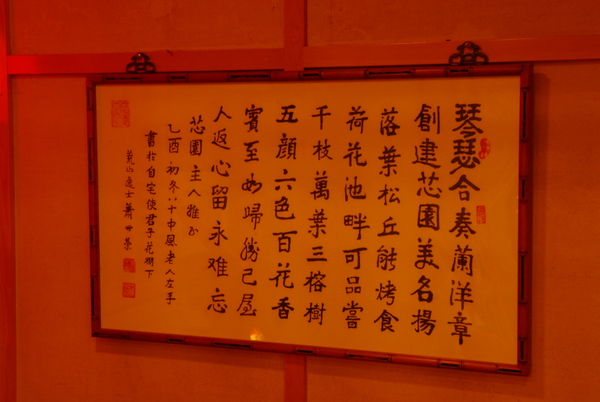 琴瑟合奏蘭洋章
創建芯園美名揚
落葉松丘能烤食
荷花池畔可品嘗
千枝萬葉三榕樹
五顏六色百花香
賓至如歸勝己屋
人返心留永难忘
芯園主人雅正
乙酉初冬八十中風老人左手
書於自宅使君子花棚下
萧世荣